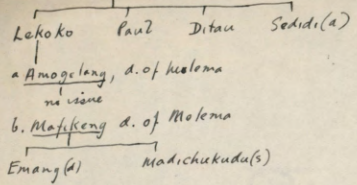 Lekoko Paul Ditau Sedidi(a)
a. Amogelang, d. of Molema
no issue
b. Mafikeng d. of Molema
Emang (d) Madichukudu(s)